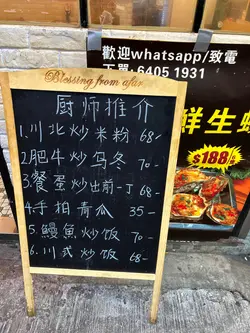 Blessing from afar
厨师推介
1.川北炒米粉 68/-
2.肥牛炒乌冬 70-
3.餐蛋炒出前一丁 68-
4.手拍青瓜 35-
5.鰻魚炒饭 70-
6.川式炒饭 68-
歡迎whatsapp/致電
下單: 6405 1931
鮮生蠔
$188/